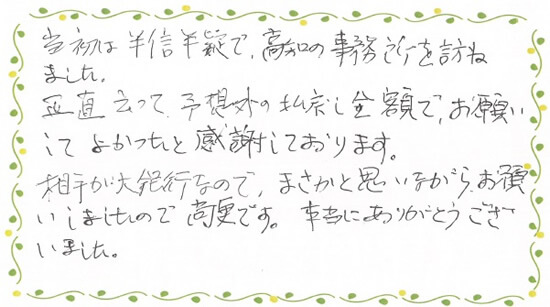 当初は半信半疑で、高知の事務所を訪ね
ました。
正直言って、予想外の払戻し金額で、お願い
してよかったと感謝しております。
相手が大銀行なので、まさかと思いながらお願
いしましたので尚更です。本当にありがとうござ
いました。